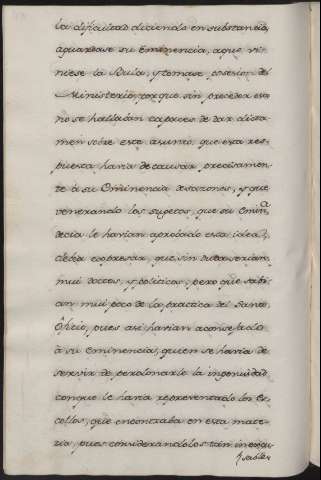 la dificultad diciendo en substancia,
aguardase su Eminencia, a que vi-
niese la Bula, y tomase posesion del
Ministerio, porque sin preceder esto
no se hallaban capaces de dar dicta-
men sobre este asunto, que esta res-
puesta havia de causar precisamen-
te à su Eminencia desazones, y que
venerando los sugetos, que su Emin.ª
decia le havian aprobado esta idea,
debia expresar, que sin duda serian,
mui doctos, y politicos, pero que sabi-
an mui poco de la practica del Santo
Oficio, pues asi havian aconsejado
à su Eminencia, quien se havia de
servir de perdonarle la ingenuidad
conque le havia representado los Es-
collos, que encontraba en esta mate-
ria, pues considerandolos tan inescu-
sables